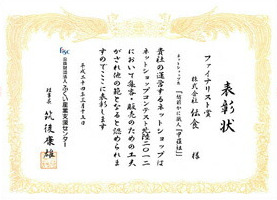 表彰状
ファイナリスト賞
株式会社 伝食 様
ネットショップ名
「越前かに職人『甲羅組』」
貴社の運営するネットショップは
ネットショップコンテスト北陸2012
において集客・販売のための工夫
がされ他の範となると認められま
すのでここに表彰します
平成二十四年三月十五日
公益財団法人 ふくい産業支援センター
理事長 筑後康雄